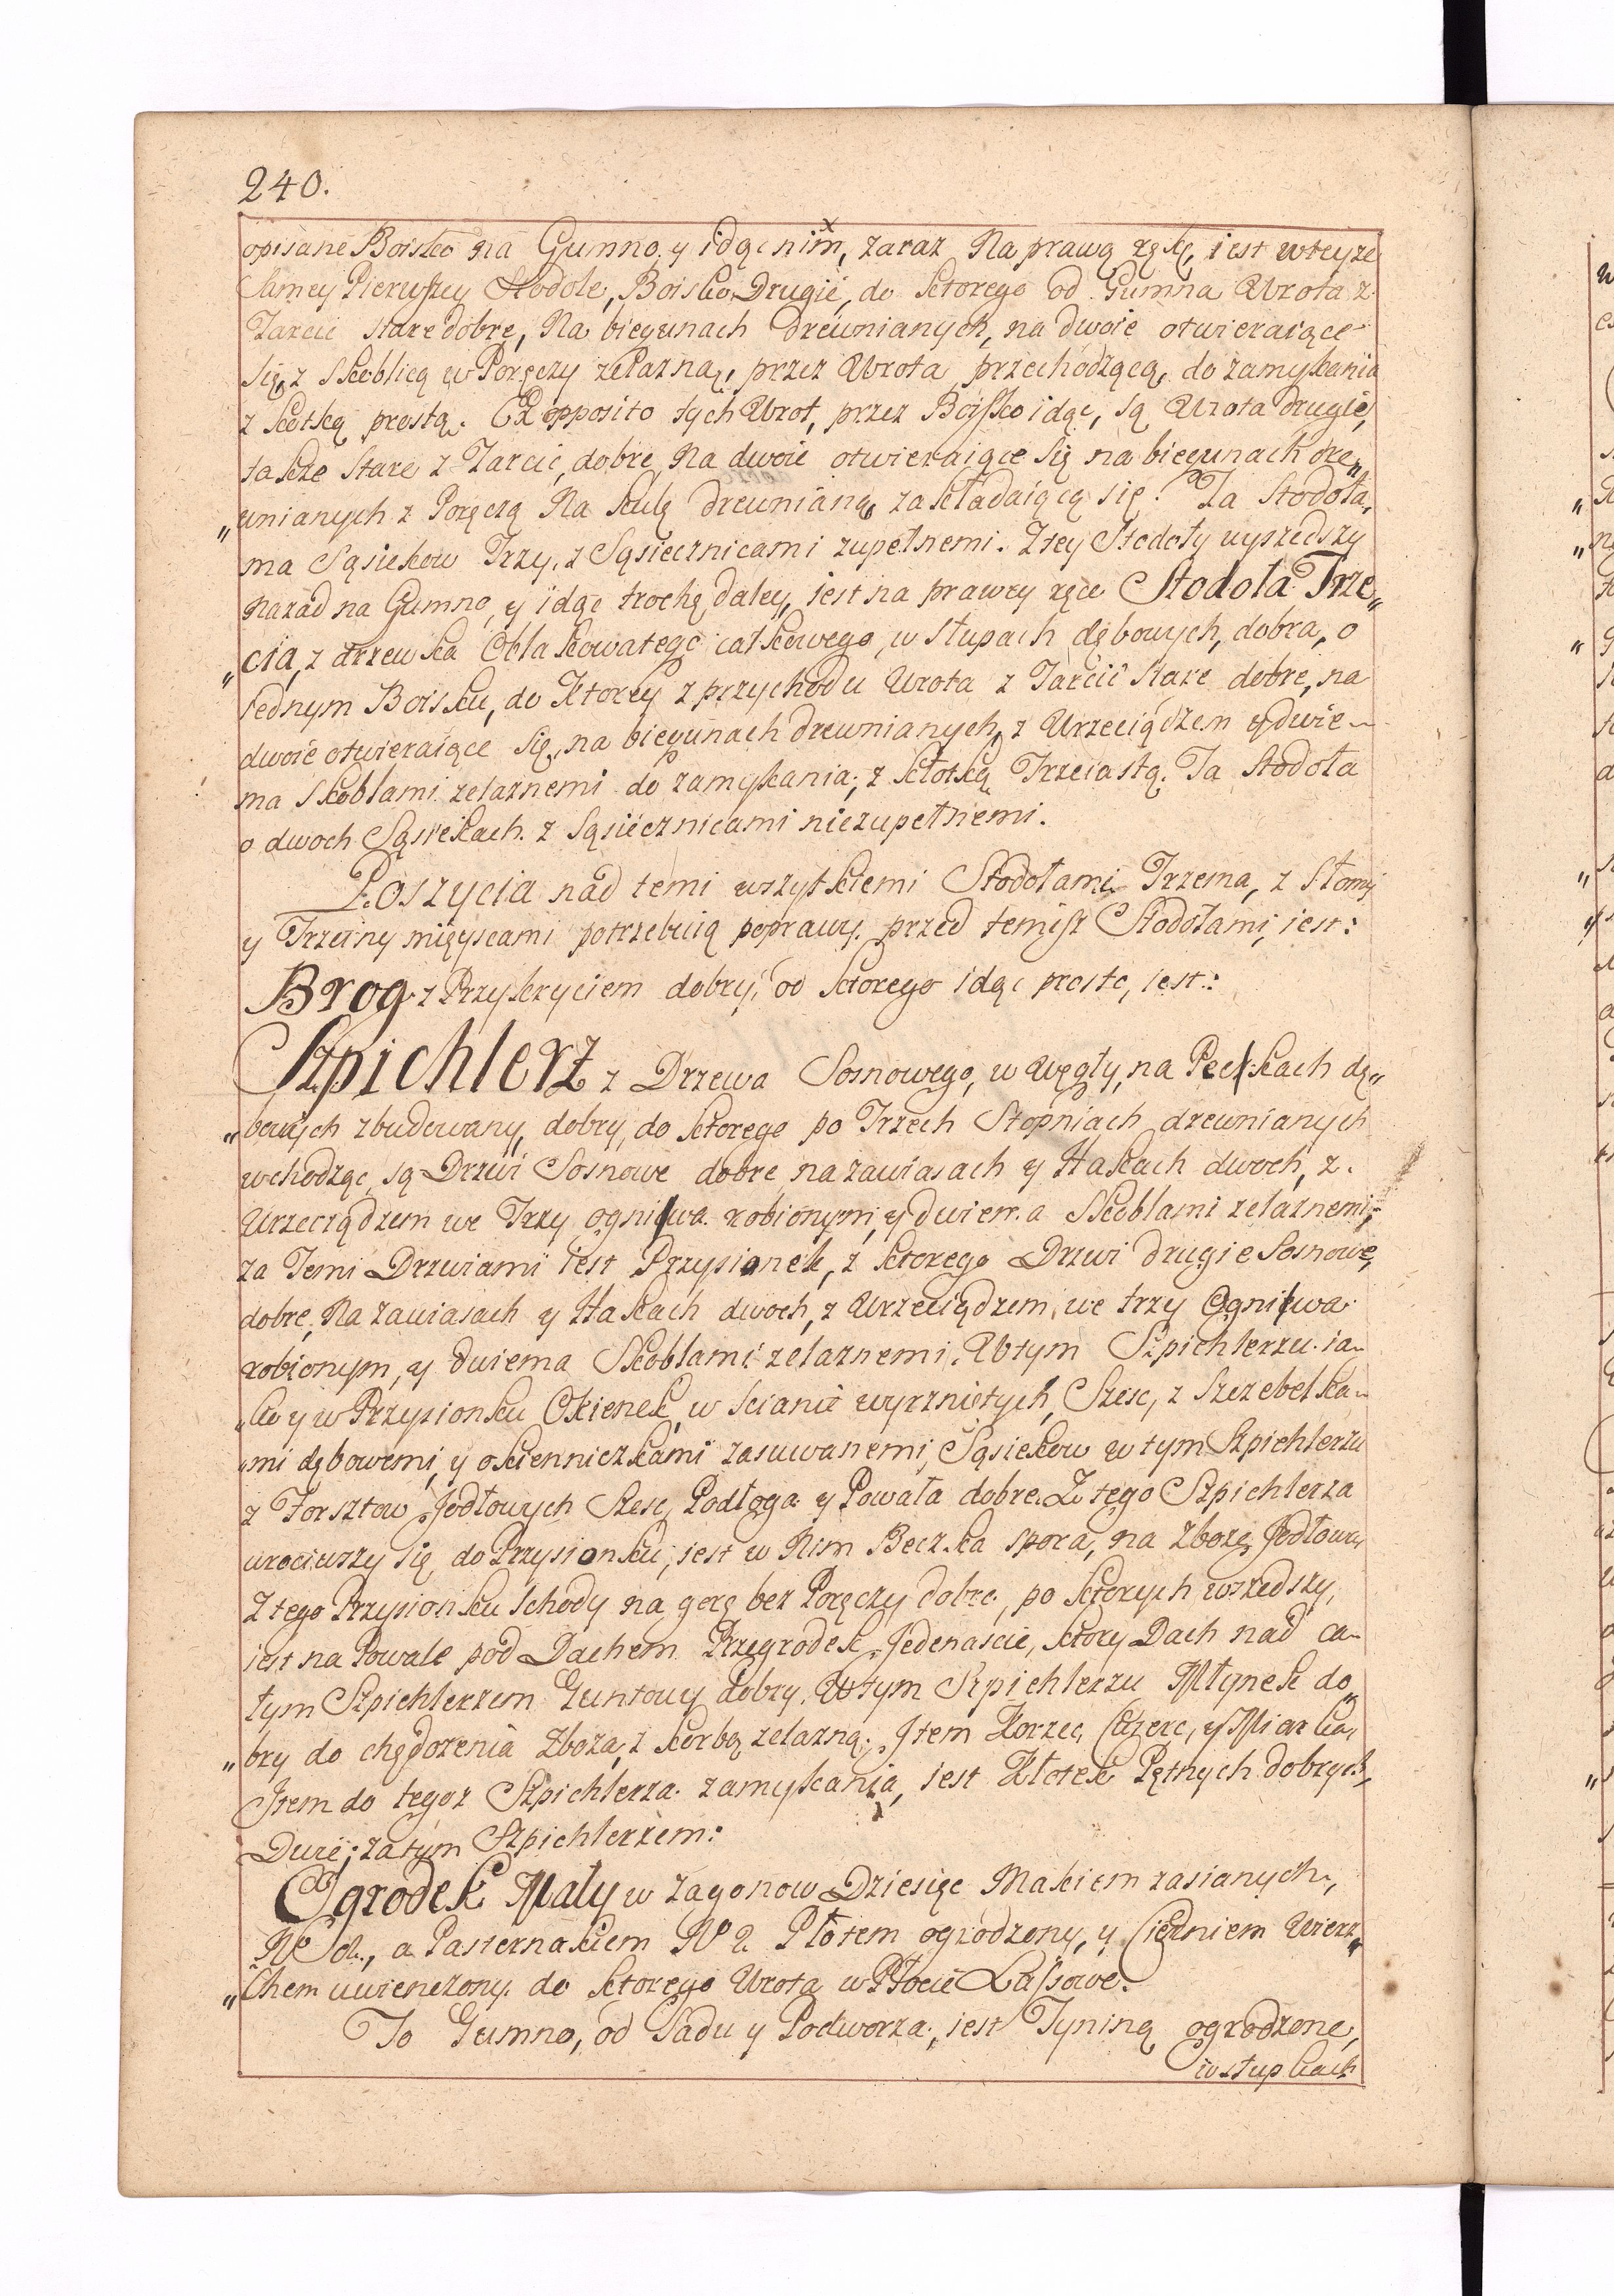 240.
opisane Boisko na Gumno, y idąc nim, zaraz Na prawą rękę, iest wteyze
Samey Pierwszey Stodole, Boisko Drugie, do ktorego od Gumna Wrota z
Tarcic stare dobre, Na biegunach drewnianych, na dwoie otwieraiące
się, z Skoblicą w Poręczy zelazną, przez Wrota przechodzącą, do zamykania
z kłotką prostą. Ex opposito tych Wrot, przez Boisko idąc, są Wrota drugie,
takze Stare z Tarcic, dobre Na dwoie otwieraiące się na biegunach dre„
„wnianych z Poręczą Na kulę drewnianą, zakładaiącą się. Ta Stodoła,
ma Sąsiekow Trzy, z Sąsiecznicami zupełnemi. Z tey Stodoły wyszedszy
nazad na Gumno, y idąc trochę daley, iest na prawey ręce Stodoła Trze„
„cia, z drzewka Obłakowatego całkowego, w słupach dębowych, dobra, o
iednym Boisku, do ktorey z przychodu Wrota z Tarcic stare dobre, na
dwoie otwieraiące się, na biegunach drewnianych, z Wrzeciądzem y dwie-
ma Skoblami zelaznemi do zamykania, z kłotką Trzeciastą. Ta Stodoła
o dwoch Sąsiekach z Sąsiecznicami niezupełnemi.
Poszycia nad temi wszytkiemi Stodołami Trzema, z Słomy
y Trzciny mieyscami potrzebuią poprawy. przed temisz Stodołami, iest:
Brog z Przykryciem dobry, od ktorego idąc prosto, iest:
Szpichlerz z Drzewa Sosnowego, w węgły, na Peckach dę„
„bowych zbudowany, dobry, do ktorego po Trzech Stopniach drewnianych
wchodząc, są Drzwi Sosnowe dobre na zawiasach y Hakach dwoch, z
Wrzeciądzem we Trzy ogniwa robionym, y dwiema Skoblami zelaznemi;
za Temi Drzwiami iest Przysionek, z ktorego Drzwi drugie Sosnowe,
dobre, Na zawiasach y Hakach dwoch, z Wrzeciądzem, we trzy Ogniwa
robionym, y dwiema Skoblami zelaznemi. W tym Szpichlerzu ia-
„ko y w Przysionku Okienek w scianie wyrzniętych, Szesc, z Szczebelka-
„mi dębowemi, y okienniczkami zasuwanemi, Sąsiekow w tym Szpichlerzu
z Forsztow Jodłowych Szesc, Podłoga y Powała dobre. Z tego Szpichlerza
wrociwszy się do Przysionku, iest w Nim Beczka spora, na Zboze Jodłowa,
Z tego Przysionku Schody na gorę bez Poręczy dobre, po ktorych wszedszy,
iest na Powale pod Dachem Przegrodek Jedenascie, ktory Dach nad ca-
łym Szpichlerzem Guntowy dobry. W tym Szpichlerzu Młynek do„
„bry do chędozenia Zboza, z korbą zelazną. Item Korzec, y Miarka,
Item do tegoz Szpichlerza zamykania, iest Kłotek Pętnych dobrych,
Dwie; za tym Szpichlerzem:
Ogrodek Mały w zagonow Dziesięc Makiem zasianych,
a Pasternakiem No 2. Płotem ogrodzony, y Cierniem Wierz„
„chem uwienczony. do ktorego Wrota w Płocie Lassowe.
To Gumno, od Sadu y Podworza, iest Tyniną ogrodzone,
w słupkach